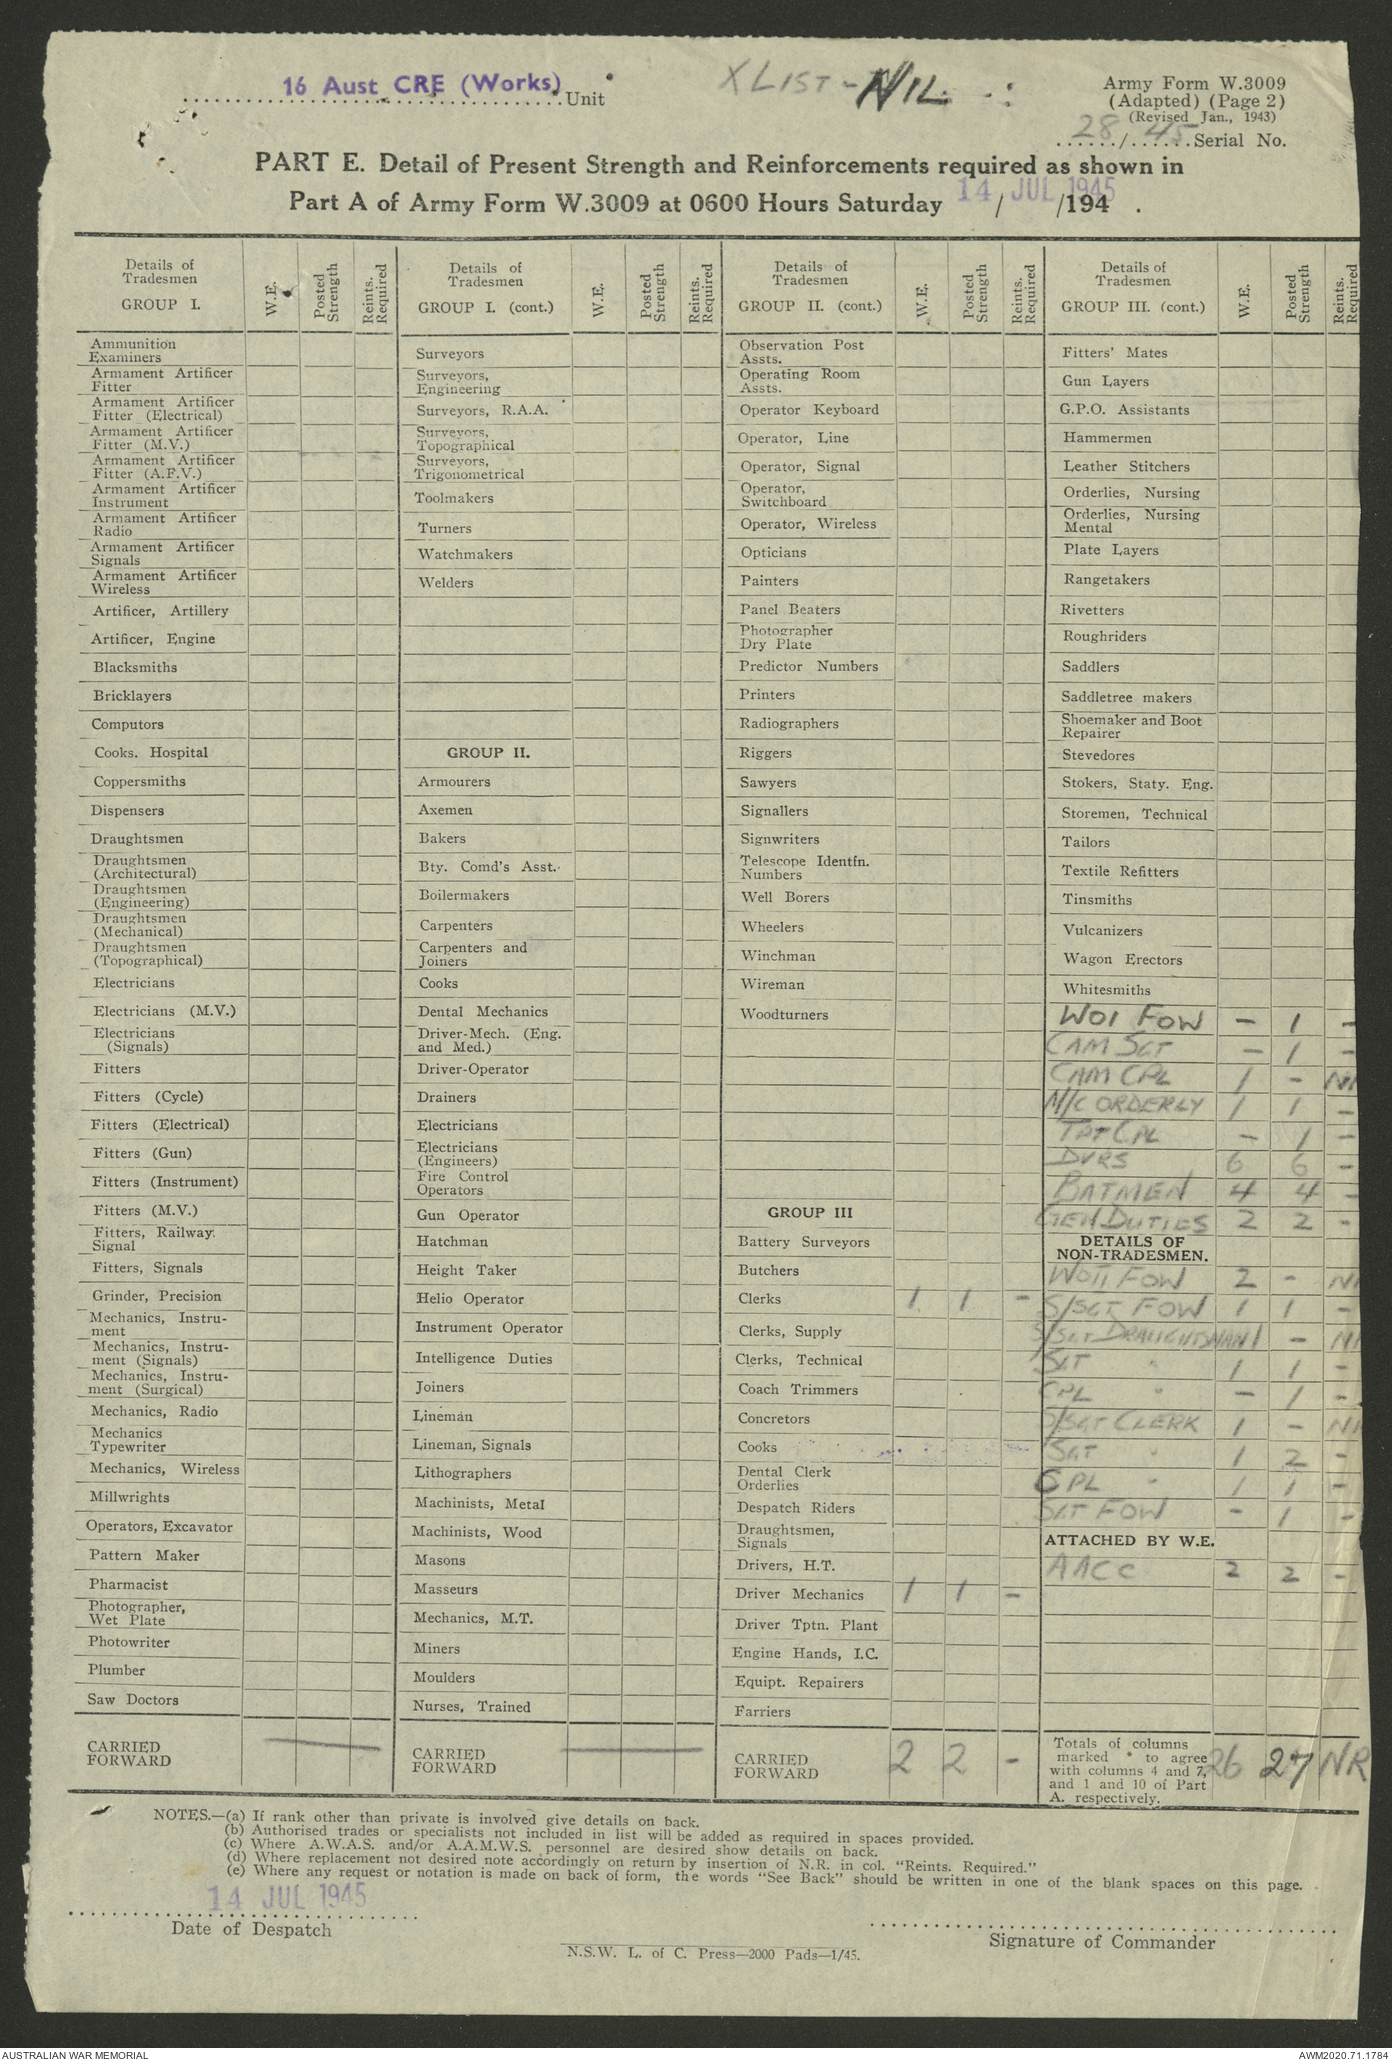 16 Aust CRE (Works) Unit
X LIST - NIL
Army Form W.3009
(Adapted) (Page 2)
(Revised Jan., 1943)
28/45 Serial No.
PART E. Detail of Present Strength and Reinforcements required as shown in
Part A of Army Form W.3009 at 0600 Hours Saturday 14 JUL 1945 / /194 .
Details of Tradesmen GROUP I. W.E. Posted Strength Reints. Required
Ammunition Examiners
Armament Artificer Fitter
Armament Artificer Fitter (Electrical)
Armament Artificer Fitter (M.V.)
Armament Artificer Fitter (A.F.V.)
Armament Artificer Instrument
Armament Artificer Radio
Armament Artificer Signals
Armament Artificer Wireless
Artificer, Artillery
Artificer, Engine
Blacksmiths
Bricklayers
Computors
Cooks. Hospital
Coppersmiths
Dispensers
Draughtsmen
Draughtsmen (Architectural)
Draughtsmen (Engineering)
Draughtsmen (Mechanical)
Draughtsmen (Topographical)
Electricians
Electricians (M.V.)
Electricians (Signals)
Fitters
Fitters (Cycle)
Fitters (Electrical)
Fitters (Gun)
Fitters (Instrument)
Fitters (M.V.)
Fitters, Railway Signal
Fitters, Signals
Grinder, Precision
Mechanics, Instru-
ment
Mechanics, Instru-
ment (Signals)
Mechanics, Instru-
ment (Surgical)
Mechanics, Radio
Mechanics Typewriter
Mechanics, Wireless
Millwrights
Operators, Excavator
Pattern Maker
Pharmacist
Photographer, Wet Plate
Photowriter
Plumber
Saw Doctors
CARRIED FORWARD —
Details of Tradesmen GROUP I. (cont.) W.E. Posted Strength Reints. Required
Surveyors
Surveyors, Engineering
Surveyors, R.A.A.
Surveyors, Topographical
Surveyors, Trigonometrical
Toolmakers
Turners
Watchmakers
Welders
GROUP II.
Armourers
Axemen
Bakers
Bty. Comd's Asst.
Boilermakers
Carpenters
Carpenters and Joiners
Cooks
Dental Mechanics
Driver-Mech. (Eng. and Med.)
Driver-Operator
Drainers
Electricians
Electricians (Engineers)
Fire Control Operators
Gun Operator
Hatchman
Height Taker
Helio Operator
Instrument Operator
Intelligence Duties
Joiners
Lineman
Lineman, Signals
Lithographers
Machinists, Metal
Machinists, Wood
Masons
Masseurs
Mechanics, M.T.
Miners
Moulders
Nurses, Trained
CARRIED FORWARD —
Details of Tradesmen GROUP II. (cont.) W.E. Posted Strength Reints. Required
Observation Post Assts.
Operating Room Assts.
Operator Keyboard
Operator, Line
Operator, Signal
Operator, Switchboard
Operator, Wireless
Opticians
Painters
Panel Beaters
Photographer Dry Plate
Predictor Numbers
Printers
Radiographers
Riggers
Sawyers
Signallers
Signwriters
Telescope Identfn. Numbers
Well Borers
Wheelers
Winchman
Wireman
Woodturners
GROUP III
Battery Surveyors
Butchers
Clerks 1 1 -
Clerks, Supply
Clerks, Technical
Coach Trimmers
Concretors
Cooks
Dental Clerk Orderlies
Despatch Riders
Draughtsmen, Signals
Drivers, H.T.
Driver Mechanics 1 1 -
Driver Tptn. Plant
Engine Hands, I.C.
Equipt. Repairers
Farriers
CARRIED FORWARD 2 2 -
Details of Tradesmen GROUP III. (cont.) W.E. Posted Strength Reints. Required
Fitters' Mates
Gun Layers
G.P.O. Assistants
Hammermen
Leather Stitchers
Orderlies, Nursing
Orderlies, Nursing Mental
Plate Layers
Rangetakers
Rivetters
Roughriders
Saddlers
Saddletree makers
Shoemaker and Boot Repairer
Stevedores
Stokers, Staty. Eng.
Storemen, Technical
Tailors
Textile Refitters
Tinsmiths
Vulcanizers
Wagon Erectors
Whitesmiths
WO1 FOW - 1 -
CAM SGT - 1 -
CAM CPL 1 - NR
M/C ORDERLY 1 1 -
TPT CPL - 1 -
DVRS 6 6 -
BATMEN 4 4 -
GEN DUTIES 2 2 -
DETAILS OF NON-TRADESMEN.
WOII FOW 2 - NR
S/SGT FOW 1 1 -
S/SGT DRAUGHTSMAN 1 - NR
SGT " 1 1 -
CPL " - 1 -
S/SGT CLERK 1 - NR
SGT " 1 2 -
CPL " 1 1 -
SGT FOW - 1 -
ATTACHED BY W.E.
AACC 2 2 -
Totals of columns marked * to agree with columns 4 and 7, and 1 and 10 of Part A. respectively. 26 27 NR
NOTES.—(a) If rank other than private is involved give details on back.
(b) Authorised trades or specialists not included in list will be added as required in spaces provided.
(c) Where A.W.A.S. and/or A.A.M.W.S. personnel are desired show details on back.
(d) Where replacement not desired note accordingly on return by insertion of N.R. in col. "Reints. Required."
(e) Where any request or notation is made on back of form, the words "See Back" should be written in one of the blank spaces on this page.
14 JUL 1945
Date of Despatch
Signature of Commander
N.S.W. L. of C. Press—2000 Pads—1/45.
AUSTRALIAN WAR MEMORIAL
AWM2020.71.1784